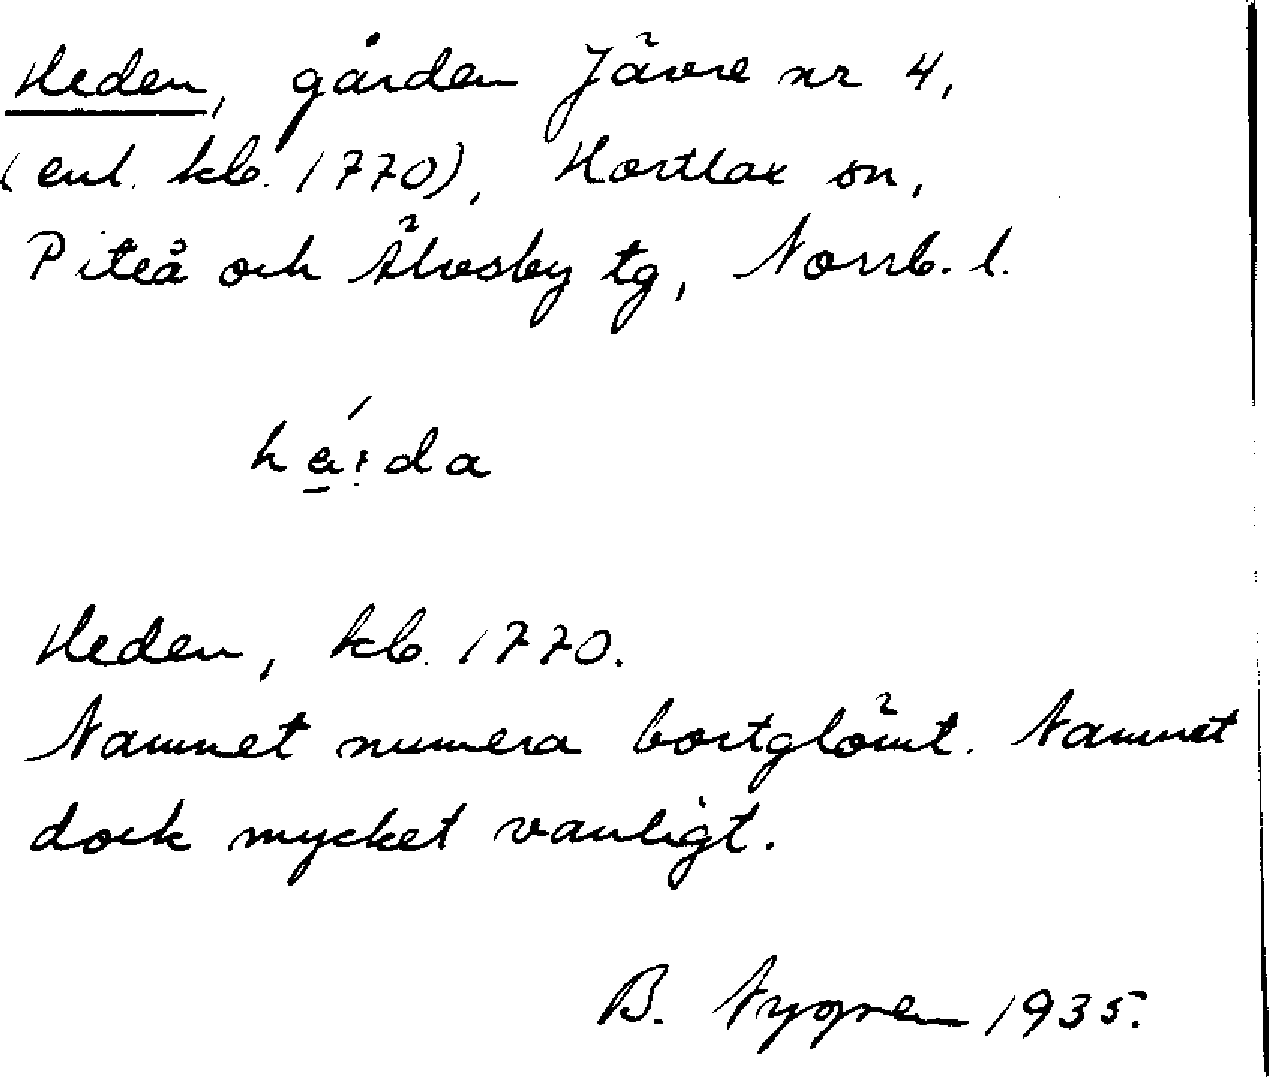 Heden, gården Jävre nr 4,
(enl. kb. 1770), Hortlax sn,
Piteå och Älvsby tg, Norrb. l.
Heden, kb. 1770.
Namnet numera bortglömt. Namnet
dock mycket vanligt.
B. Nygren 1935.